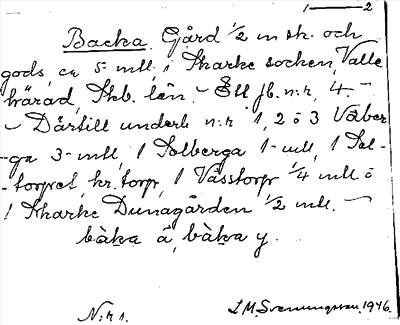 1——2
Backa. Gård 1/2 m sk. och
gods, ca 5 mtl. i Skarke socken, Valle
härad, Skb. län. – Ett jb. n:r, 4. –
– Därtill underl. n:r 1, 2 o 3 Väber-
-ga 3-mtl, 1 Solberga 1-mtl, 1 Sol-
-torpet, kr. torp, 1 Vässtorp 1/4 mtl o
1 Skarke Dunagården 1/2 mtl. –
bàka å, bàka y.
N:r 1.
L.M. Svenungsson. 1946.